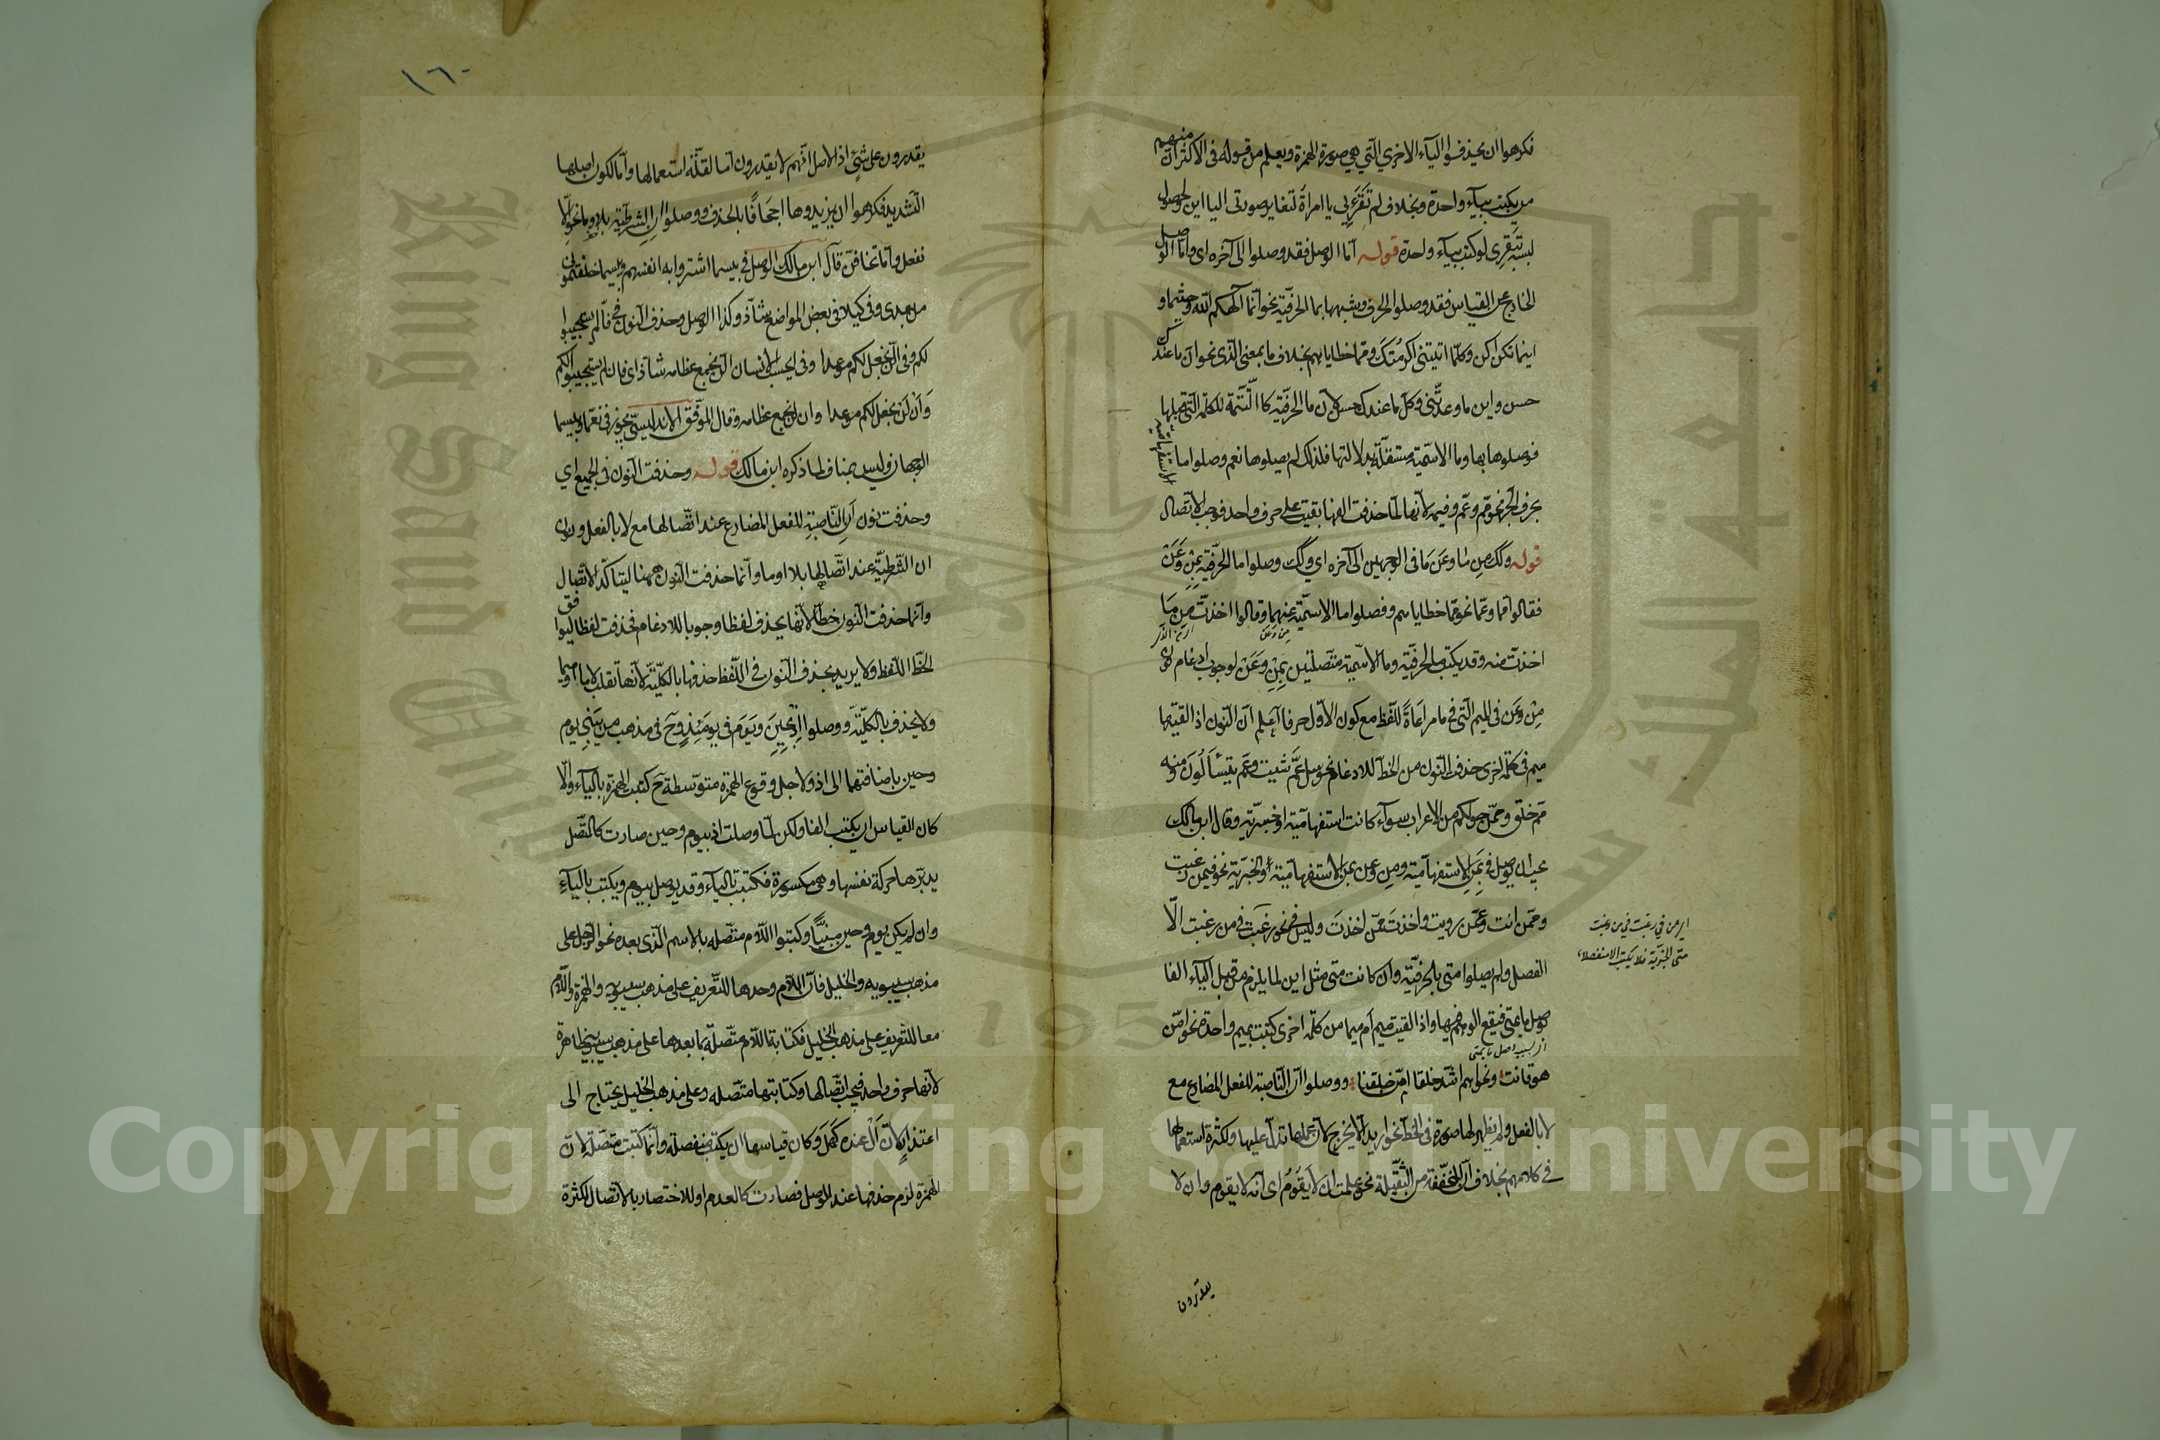 فكرهوا ان يحذفوا الياء الاخرى التي هي صورة الهمزة ويعلم من قوله في الاكثر ان منهم
من يكتب بياء واحدة وبخلاف لم تقرئي يا امراة لتغاير صورتي اليا اين لحصول
لبسه بتقري لو كتب بياء واحدة قوله اما الوصل فقد وصلوا الى آخره اي واما الوصل
الخارج عن القياس فقد وصلوا الحرف وشبهها بما الحرفية نحو انما الهكم الله وحيثما و
اينما تكن اكن وكلما اتيتني اكرمتك ومما خطاياهم بخلاف ما بمعنى الذي نحو ان ما عندك
حسن واين ما وعدتني وكل ما عندك حسن لان ما الحرفية كالتتمة للكلمة التي قبلها
فوصلوها بها وما الاسمية مستقلة بدلالتها فلذلك لم يصلوها نعم وصلوا ما الاستفهامية
بحرف الجر نحو مم وعم وفيم لانها لما حذفت الفها بقيت على حرف واحد فوجب الاتصال
قوله وكذلك من ما وعن ما في الوجهين الى آخره اي وكذلك وصلوا ما الحرفية بمن وعن
فقالوا مما وعما نحو مما خطاياهم وفصلوا ما الاسمية عنهما وقالوا اخذت من ما
اخذت منه وقد يكتب ما الحرفية وما الاسمية متصلتين بمن وعن لوجوب ادغام نون
من وعن في الميم التي في ما مراعاة للفظ مع كون الاول حرفا اعلم ان النون اذا لقيتها
ميم في كلمة اخرى حذفت النون من الخط للادغام نحو سل عم شئت وعم يتساءلون ومنه
مم خلق وممن حولكم من الاعراب سواء كانت استفهامية او خبرية وقال ابن مالك
يجب ان يوصل في بمن الاستفهامية ومن وعن بمن الاستفهامية او الخبرية نحو فيمن رغبت
وممن انت وعمن رويت واخذت ممن اخذت وليس في نحو رغبت في من رغبت الا
الفصل ولم يصلوا متى بالحرفية وان كانت متى مثل اين لما يلزم من قبل الياء الفا
اي من في رغبت في من رغبت
متى الخبرية فلا يكتب الا منفصلا
هو قانت ونحو اهم اشد خلقا ام من خلقنا ووصلوا ان الناصبة للفعل المضارع مع
لا بالفعل ولم يظهر لها صورة في الخط نحو اريد الا يخرج لان عملها تدل عليها ولكثرة استعمالها
في كلامهم بخلاف ان المخففة من الثقيلة نحو علمت ان لا يقوم اي انه لا يقوم وان لا
يقدرون
١٦٠
يقدرون على شيء اذ الاصل انهم لا يقدرون اما لقلة استعمالها واما لكون اصلها
التشديد فكرهوا ان يزيدوها اجحافا بالحذف ووصلوا ان الشرطية بلا وبما نحو الا
تفعل واما تخافن قال ابن مالك الوصل في بيسما اشتروا به انفسهم وبيسما خلفتموني
من بعدي وفي كيلا في بعض المواضع شاذ وكذا الوصل وحذف النون في فالم يستجيبوا
لكم وفي الن نجعل لكم موعدا وفي ايحسب الانسان الن نجمع عظامه شاذ اي فان لم يستجيبوا لكم
وان لن نجعل لكم موعدا وان لن نجمع عظامه وقال الموفق الاندلسي يجوز في نعما وبيسما
الوجهان وليس بمناف لما ذكره ابن مالك قوله وحذفت النون في الجميع اي
وحذفت نون ان الناصبة للفعل المضارع عند اتصالها مع لا بالفعل ونون
ان الشرطية عند اتصالها بلا او ما وانما حذفت النون ههنا ليتاكد الاتصال
وانما حذفت النون خطا لانها يحذف لفظا وجوبا للادغام فحذفت لفظا ليوافق
الخط اللفظ ولا يريد بحذف النون في اللفظ حذفها بالكلية لانها تقلب لاما او ميما
ولا يحذف بالكلية ووصلوا اذ بحين ويوم في يومئذ وح في مذهب من يبني يوم
وحين باضافتهما الى اذ ولاجل وقوع الهمزة متوسطة ح كتبت الهمزة بالياء والا
كان القياس ان يكتب الفا ولكن لما وصلت اذ بيوم وحين صارت كالمتصل
يدبرها حركة نفسها وهي مكسورة فكتبت بالياء وقد يوصل بيوم ويكتب بالياء
وان لم يكن يوم وحين مبنيا وكتبوا اللام متصلة بالاسم الذي بعده نحو الرجل على
مذهب سيبويه والخليل فان اللام وحدها للتعريف على مذهب سيبويه والهمزة واللام
معا للتعريف على مذهب الخليل فكتابة اللام متصلة بما بعدها على مذهب سيبويه ظاهرة
لانها حرف واحد فيجب اتصالها وكتابتها متصلة وعلى مذهب الخليل يحتاج الى
اعتذار لان ال عنده كهل وكان قياسها ان يكتب منفصلة وانما كتبت متصلة لان
الهمزة لزم حذفها عند الوصل فصارت كالعدم او للاختصار بالاتصال لكثرة
King Saud University
جامعة الملك سعود
1957
Copyright © King Saud University